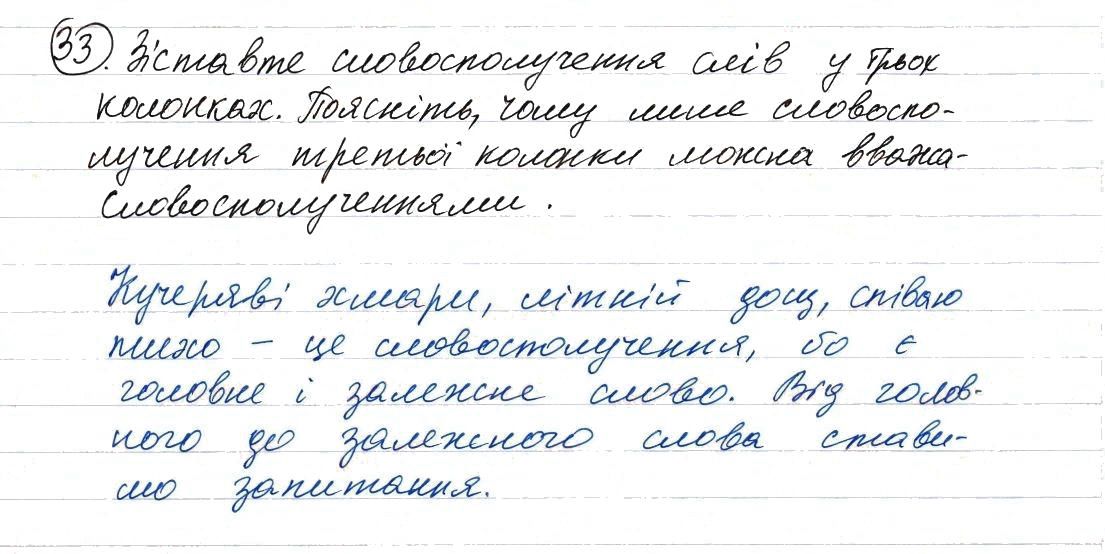 33. Зіставте словосполучення слів у трьох
колонках. Поясніть, чому лише словоспо-
лучення третьої колонки можна вважа-
словосполученнями.
Кучеряві хмари, літній дощ, співаю
тихо – це словосполучення, бо є
головне і залежне слово. Від голов-
ного до залежного слова стави-
мо запитання.